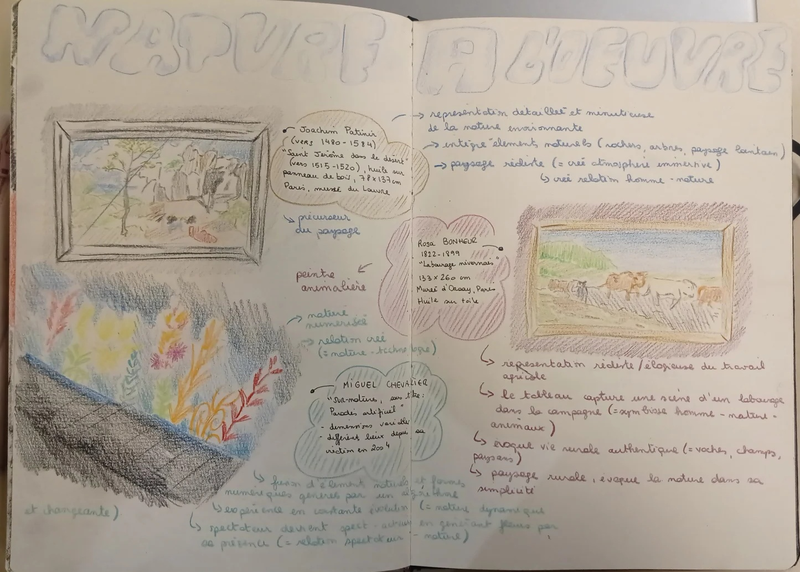 NATURE A L'OEUVRE
Joachim Patinir
(vers 1480 - 1524)
"Saint Jérôme dans le désert"
(vers 1515-1520), huile sur
panneau de bois, 78 x 137 cm
Paris, musée du Louvre
↳ précurseur
du paysage
→ représentation détaillée et minutieuse
de la nature environnante
→ intègre éléments naturels (rochers, arbres, paysage lointain)
→ paysage réaliste (= créé atmosphère immersive)
↳ créé relation homme - nature
Rosa BONHEUR
1822-1899
"Labourage nivernais"
133 x 260 cm
Musée d'Orsay, Paris
Huile sur toile
peintre
animalière
↳ représentation réaliste/élogieuse du travail
agricole
↳ le tableau capture une scène d'un labourage
dans la campagne (= symbiose homme - nature -
animaux)
↳ évoque vie rurale authentique (= vaches, champs,
paysans)
↳ paysage rurale, évoque la nature dans sa
simplicité
→ nature
numérisée
→ relation créé
(= nature - technologie)
MIGUEL CHEVALIER
sous titre:
Paradis artificiel"
- dimensions variables
- différent lieux depuis sa
en 2004
↳ fusion d'élément naturels et formes
numériques générés par un algorithme
↳ expérience en constante évolution (= nature dynamique
et changeante)
↳ spectateur devient spect-acteur en générant fleurs par
sa présence (= relation spectateur - nature)